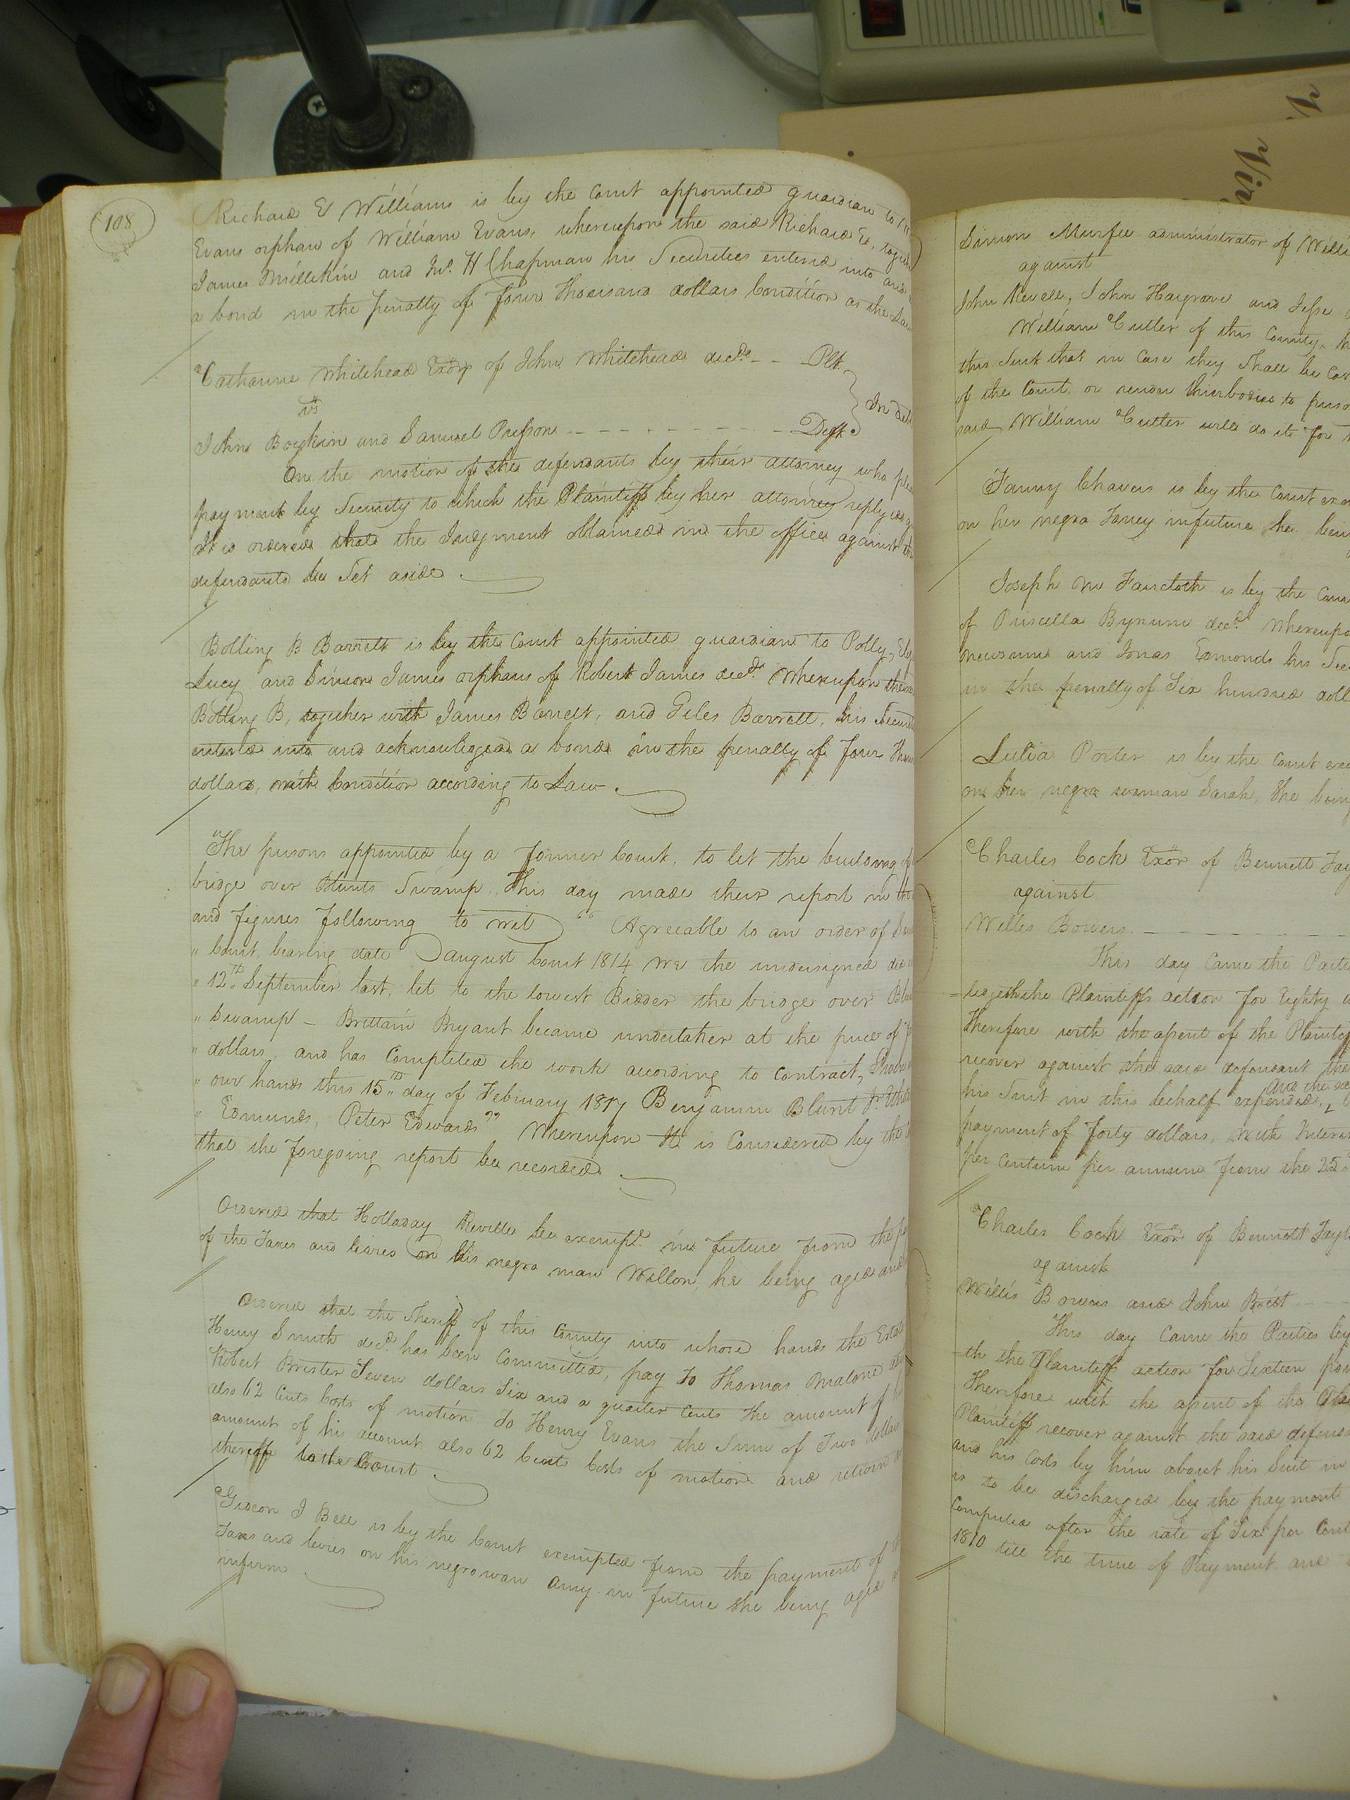 108
Richard E Williams is by the Court appointed guardian to
Evans orphan of William Evans, whereupon the said Richard E, together
James Millikin and Jno. H Chapman his Securities entered into and
a bond in the penalty of four Thousand dollars Condition as the Law
Catharine Whitehead Exōrx of John Whitehead decd. Plt.
vs
In debt
John Boykin and Samuel Presson Deft.
On the motion of the defendants by their attorney who plea
payment by Security to which the Plaintiff by her attorney replyed
It is ordered that the Judgment obtained in the office against the
defendants be Set aside.
Bolling B Barrett is by the Court appointed guardian to Polly,
Lucy and Simon James orphans of Robert James decd. Whereupon the said
Bolling B, together with James Barrett, and Giles Barrett, his Securi
entered into and acknowledged a bond in the penalty of four Thous
dollars, with Condition according to Law.
The persons appointed by a former Court, to let the building of
bridge over Blunts Swamp This day made their report in the
and figures following to wit " Agreeable to an order of
" Court bearing date August Court 1814 We the undersigned did
" 12th September last, let to the lowest Bidder the bridge over Blu
" Swamp – Brittain Bryant became undertaker at the price of
" dollars, and has Completed the work according to Contract,
" our hands this 15th day of February 1817 Benjamin Blunt Jr.
" Edmunds, Peter Edwards" Whereupon It is Considered by the
that the foregoing report be recorded
Ordered that Holladay Reville be exempt in future from the
of the Taxes and levies on his negro man Willon, he being aged and
Ordered that the Sheriff of this County into whose hands the Esta
Henry Smith decd. has been Committed, pay to Thomas Malone
Robert Brister Seven dollars Six and a quarter Cents the amount of
also 62 Cents Costs of motion To Henry Evans the Sum of Two dollars
amount of his account also 62 Cents Costs of motion and return
thereof to the Court.
Gideon J Bell is by the Court exempted from the payment of
Taxes and levies on his negro woman Amy in future she being aged
infirm
Simon Murfee administrator of Willi
against
John Revell, John Hargrave and Jesse
William Cutler of this County,
this Suit that in Case they Shall be Cas
of the Court or render their bodies to prison
said William Cutler will do it for
Fanny Chavers is by the Court exem
on her negro Fancy in future she being
Joseph M Faucloth is by the Court
of Priscilla Bynum decd. Whereupon
Newsums and Jonas Edmonds his Secu
in the penalty of Six hundred doll
Lutia Porter is by the Court exe
on her negro woman Sarah, She being
Charles Cock Exōr of Bennett Tay
against
Willis Bowers
This day Came the Partie
the Plaintiffs action for Eighty
Therefore with the assent of the Plaintiff
recover against the said defendant the
his Suit in this behalf expended, and the sai
payment of forty dollars, with Interes
per Centum per annum from the 25
Charles Cock Exōr of Bennett Tayl
against
Willis Bowers and John Britt
This day Came the Parties by
the Plaintiff action for Sixteen poun
Therefore with the assent of the Plai
Plaintiff recover against the said defend
and his Costs by him about his Suit in
is to be discharged by the payment
Computed after the rate of Six per Cent
1810 till the time of Payment and